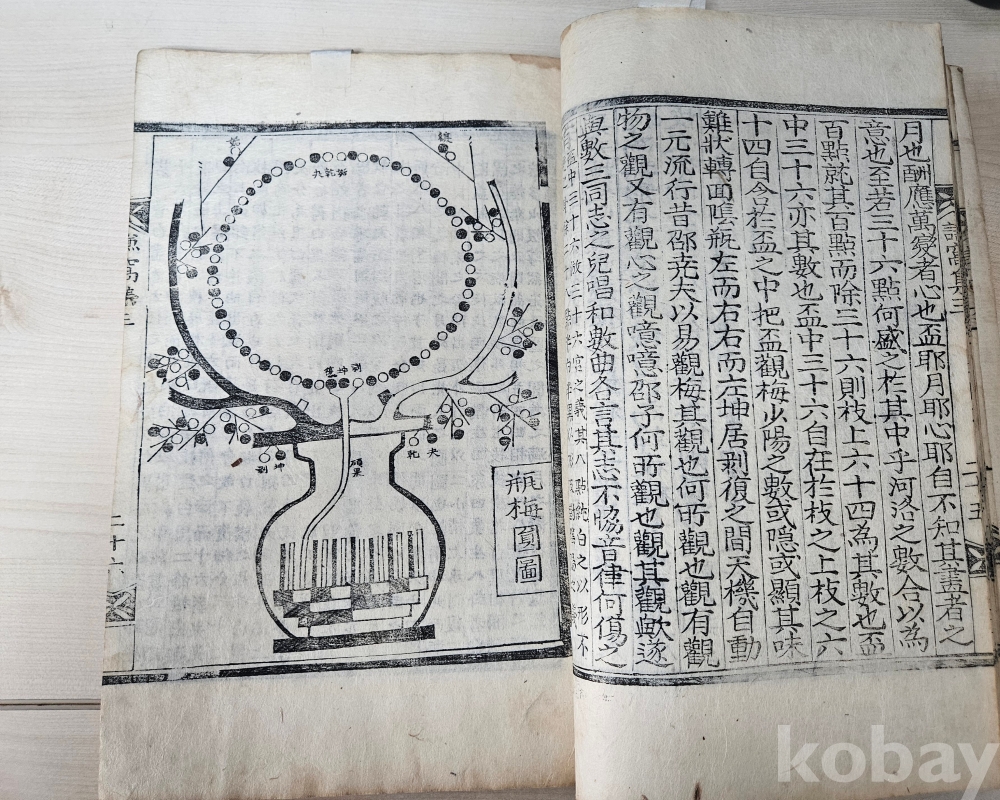 月也酬應萬變者心也盃耶月耶心耶自不知其盡者之
意也至若三十六點何盛之於其中乎河洛之數合以為
百點就其百點而除三十六則枝上六十四為其數也盃
中三十六亦其數也盃中三十六自在於枝之上枝之六
十四自令於盃之中把盃觀梅少陽之數或隱或顯其味
難狀轉面隹瓶左而右右而左坤居剥復之間天機自動
一元流行昔邵堯夫以易觀梅其觀也何所觀也觀有觀
物之觀又有觀心之觀噫噫邵子何所觀也觀其觀歟逐
與數三同志之兒唱和數曲各言其志不恊音律何傷之
瓶梅圓圖
碩果
剥坤復
姤乾九
夬乾
坤剥
二十六
二十五
kobay